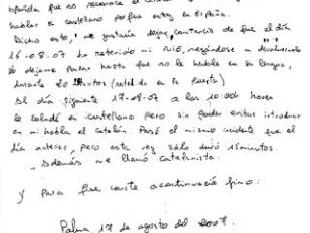 española que no reconoce el
hablar en castellano porque estoy en España.
Dicho esto, me gustaría dejar constancia de que el día
16.08.07 ha retenido mi NIE, negándose a devolvérmelo
o dejarme pasar hasta que no le hable en su lengua,
durante 20 minutos (retenido en la puerta)
El día siguiente 17-08-07 a las 10:00 horas
le saludé en castellano pero sin poder evitar introducir
en mi habla el catalán. Pasó el mismo incidente que el
día anterior, pero esta vez sólo duró 15 minutos.
Además me llamó catalanista.
Y para que conste a continuación firmo:
Palma 17 de agosto del 2007.